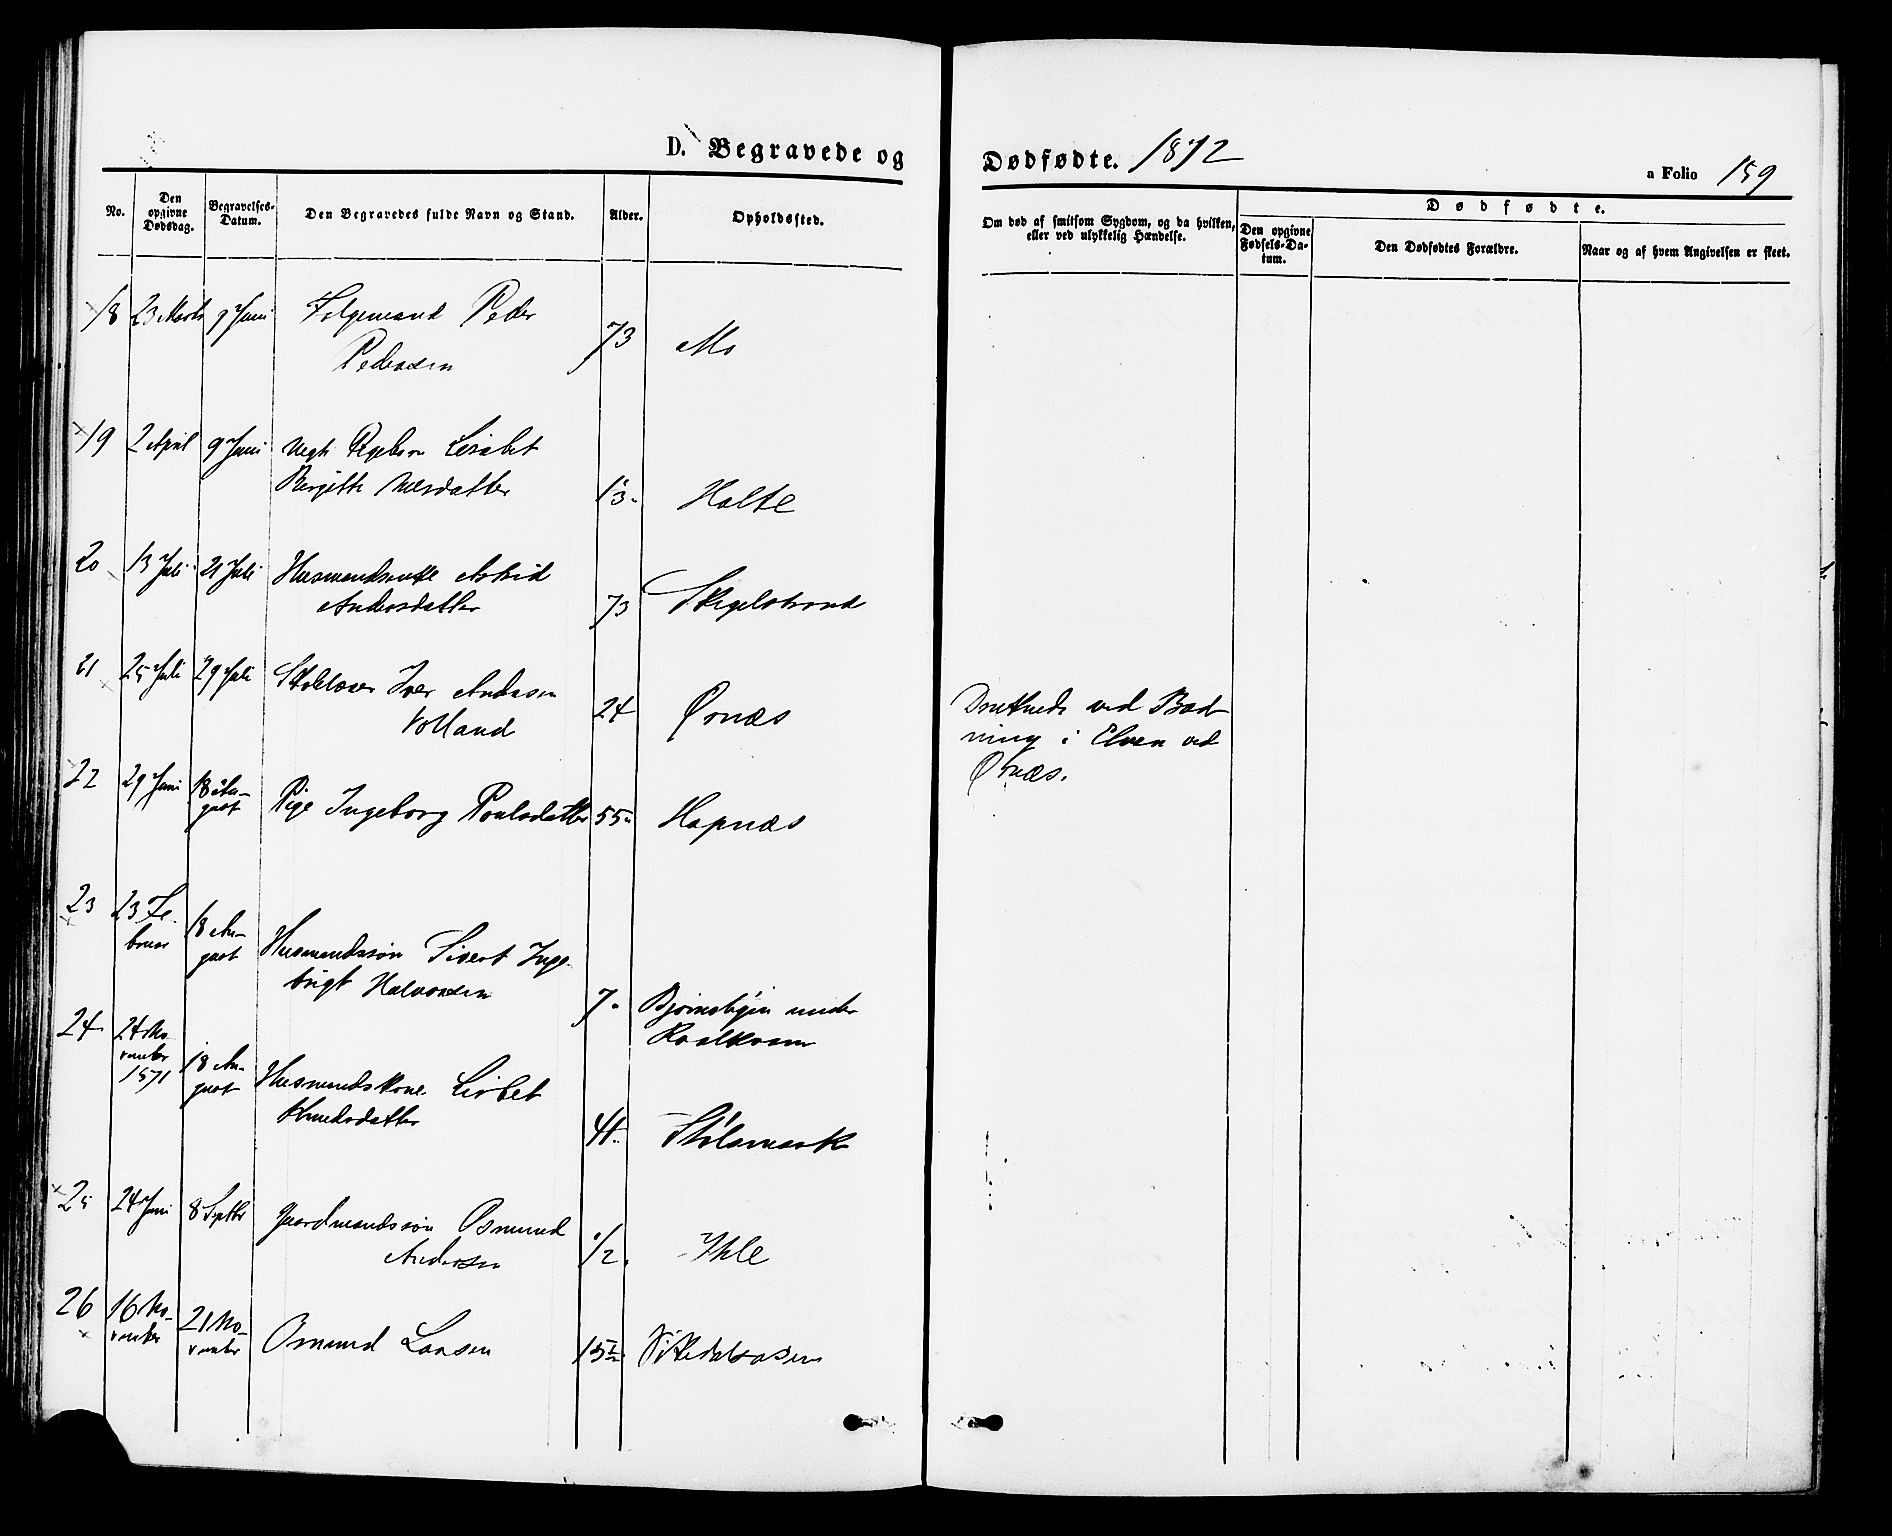 D. Begravede og
Dødfødte. 1872
a Folio 159
No.
Den opgivne Dødsdag.
Begravelses-Datum.
Den Begravedes fulde Navn og Stand.
Alder.
Opholdssted.
Om død af smitsom Sygdom, og da hvilken,
eller ved ulykkelig Hændelse.
Dødfødte.
Den opgivne Fødsels-Da-tum.
Den Dødfødtes Forældre.
Naar og af hvem Angivelsen er skeet.
18 23 Marts 9 Juni Folgemand Peder
Pedersen 73 Mo
19 2 April 9 Juni Lisabet
Birgitte Nilsdatter 13 Holte
20 13 Juli 21 Juli Husmandsenke Astrid
Andersdatter 73
21 25 Juli 29 Juli Skolelærer Iver Andersen
Volland 24 Ørnæs
Druknede ved Bad-
ning i Elven ved
Ørnæs.
22 29 Juni 18 Au-
gust Pige Ingeborg Poulsdatter 55 Hapnæs
23 23 Fe-
bruar 18 Au-
gust Husmandssøn Sivert Inge-
brigt Halvorsen 7 under
Kvalkvam
24 24 No-
vember
1871 18 Au-
gust Husmandskone Lisbet
Knudsdatter 41 Stølsmark
25 24 Juni 8 Septbr Gaardmandssøn Osmund
Andersen 1/2 Ihle
26 16 No-
vember 21 No-
vember Osmund Larsen Vikedalsosen